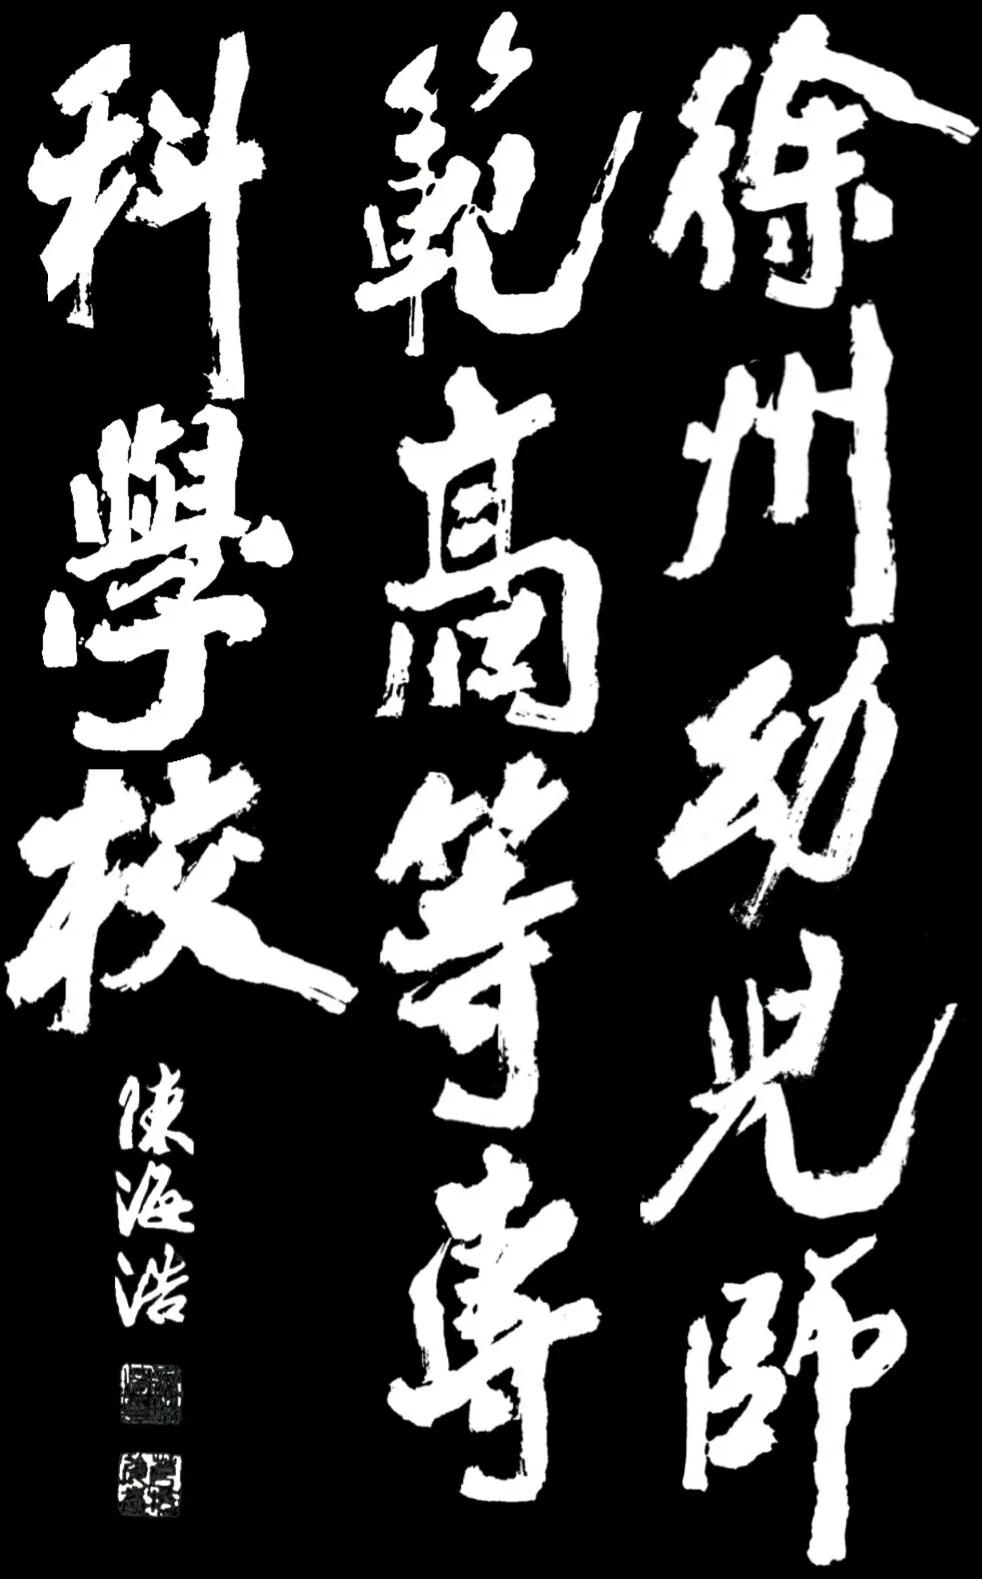 徐州幼兒師
範高等專
科學校
陳海浩